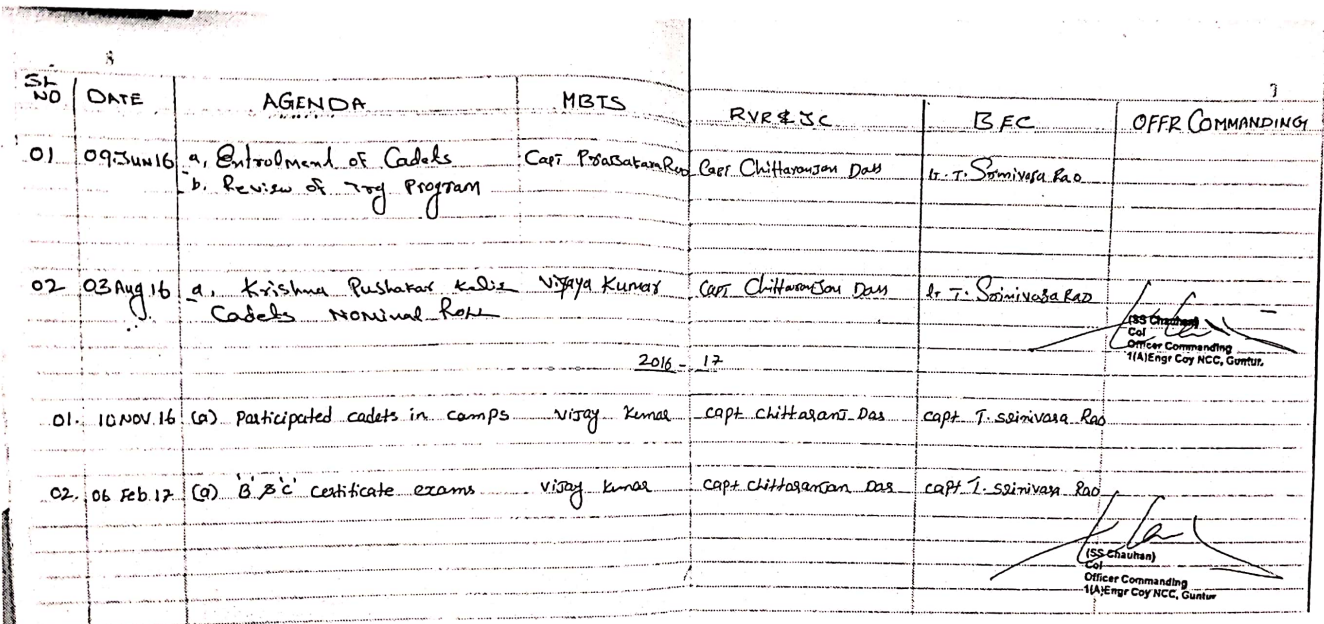 SL NO DATE AGENDA MBTS RVR & JC BEC OFFR COMMANDING
01 09 JUN 16 a, Entrolment of Cadets Capt Prabakara Rao Capt Chittaranjan Das Lt. T. Srinivasa Rao
b. Review of Trg Program
02 03 Aug 16 a, Krishna Pushakar Vijaya Kumar Capt Chittaranjan Das Lt T. Srinivasa Rao
Cadets Nominal Roll
(SS Chauhan)
Col
Officer Commanding
1(A)Engr Coy NCC, Guntur.
2016 - 17
01. 10 NOV 16 (a) Participated cadets in camps Vijay Kumar Capt Chittaranj Das Capt T. Srinivasa Rao
02. 06 Feb 17 (a) 'B' & 'C' certificate exams Vijay Kumar Capt Chittaranjan Das Capt T. Srinivasa Rao
(SS Chauhan)
Col
Officer Commanding
1(A)Engr Coy NCC, Guntur